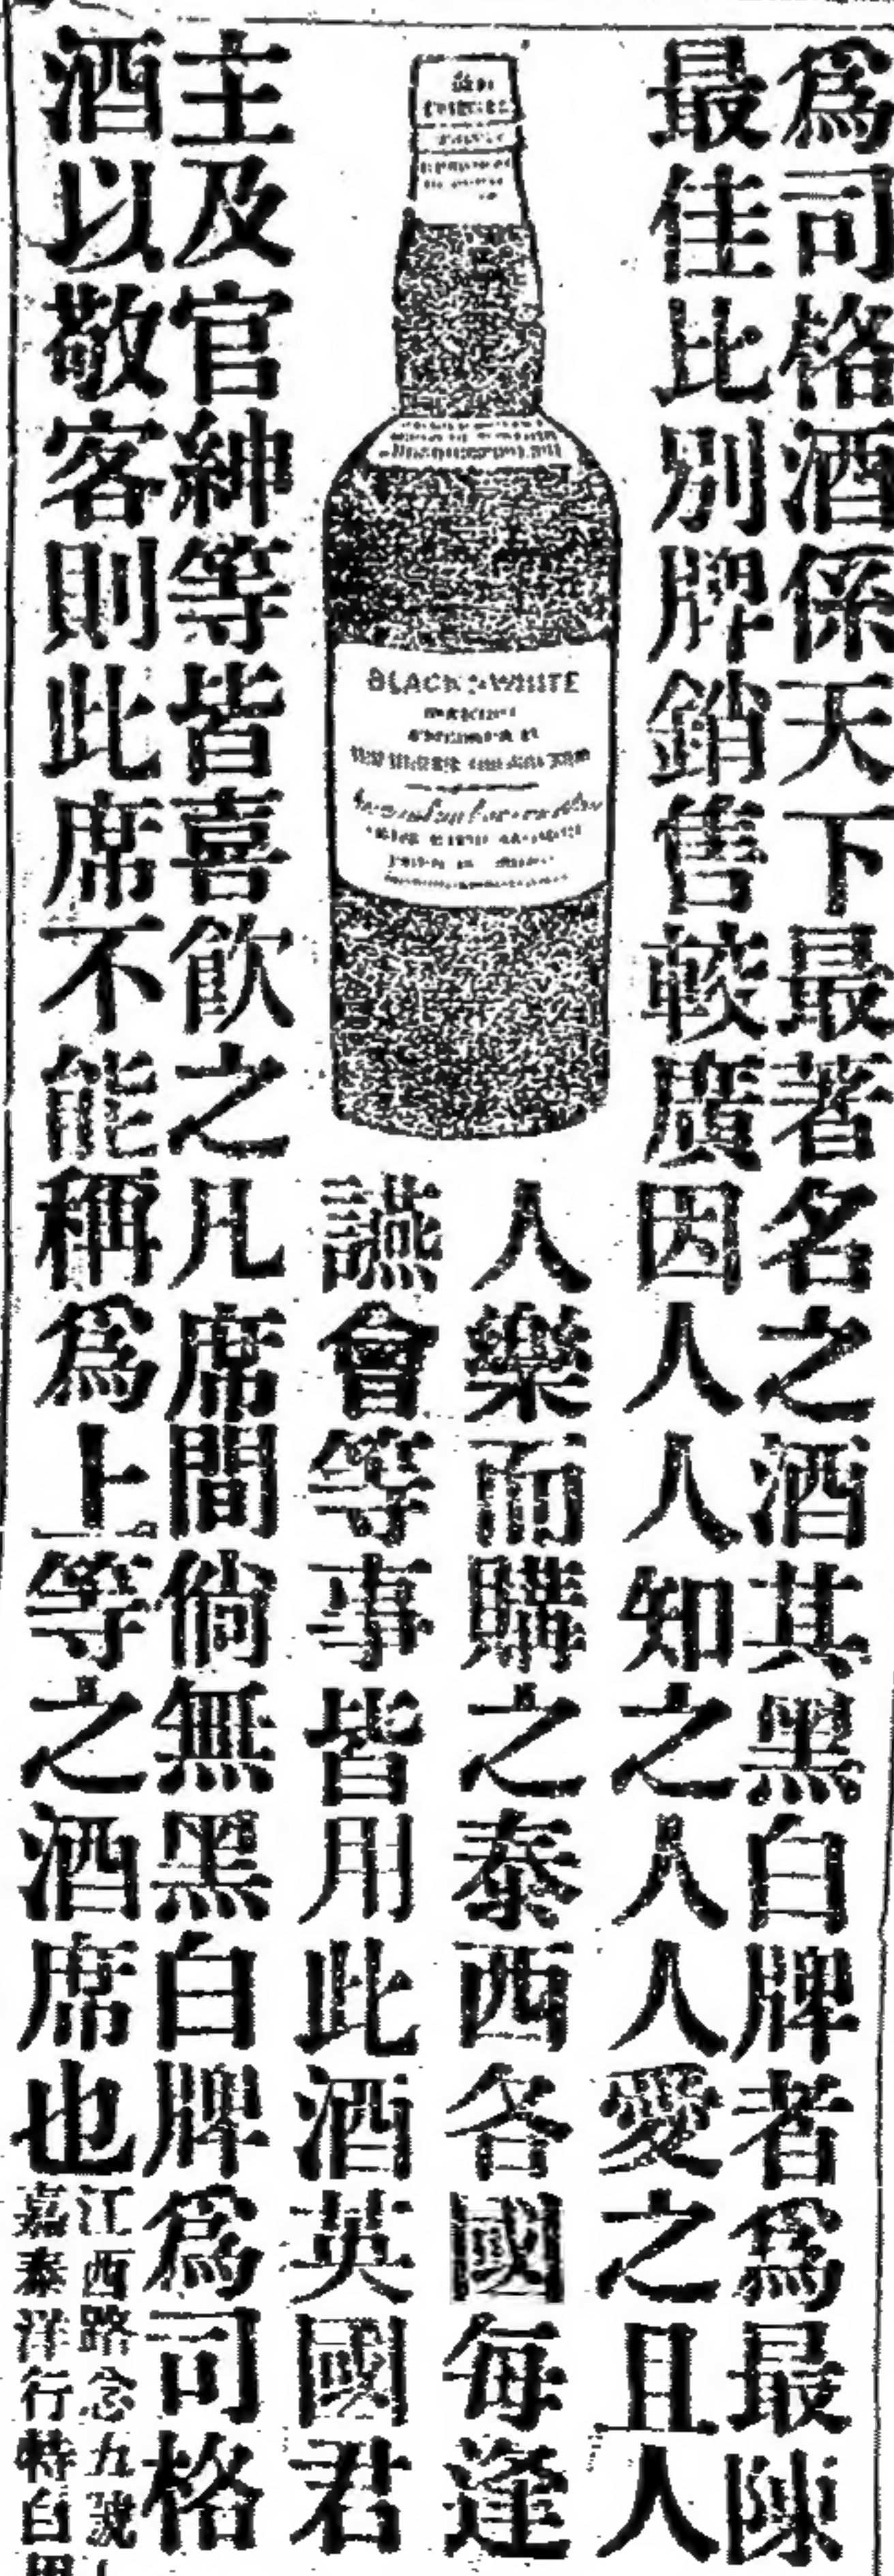 爲司格酒係天下最著名之酒其黑白牌者爲最陳
最佳比別牌銷售較廣因人人知之人人愛之且人
人樂而購之泰西各國每逢
讌會等事皆用此酒英國君
主及官紳等皆喜飲之凡席間倘無黑白牌爲司格
酒以敬客則此席不能稱爲上等之酒席也
江西路念九號
嘉泰洋行特白
BLACK & WHITE